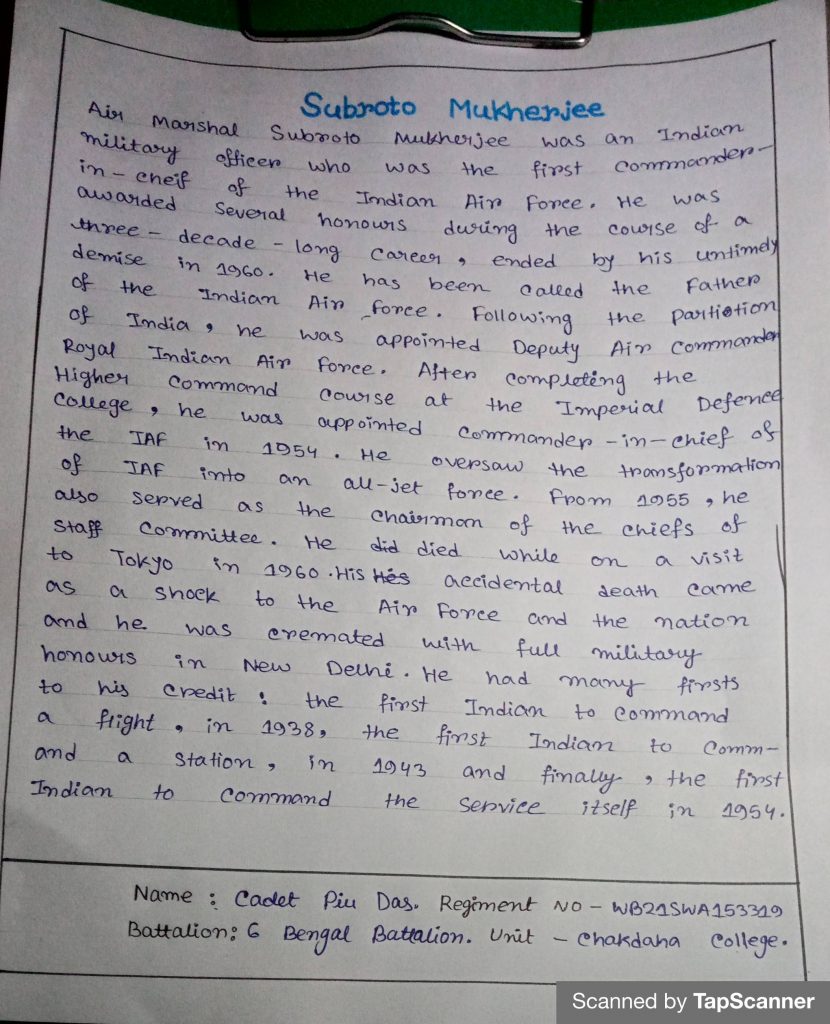 Subroto Mukherjee
Air Marshal Subroto Mukherjee was an Indian
military officer who was the first Commander-
in-cheif of the Indian Air Force. He was
awarded several honours during the course of a
three-decade-long career, ended by his untimely
demise in 1960. He has been called the Father
of the Indian Air force. Following the partiotion
of India, he was appointed Deputy Air Commander
Royal Indian Air Force. After completing the
Higher Command course at the Imperial Defence
College, he was appointed Commander-in-chief of
the IAF in 1954. He oversaw the transformation
of IAF into an all-jet force. From 1955, he
also served as the chairman of the chiefs of
Staff Committee. He did died while on a visit
to Tokyo in 1960. His His accidental death came
as a shock to the Air Force and the nation
and he was cremated with full military
honours in New Delhi. He had many firsts
to his credit: the first Indian to command
a flight, in 1938, the first Indian to comm-
and a station, in 1943 and finally, the first
Indian to command the service itself in 1954.
Name: Cadet Piu Das. Regiment NO - WB21SWA153319
Battalion: 6 Bengal Battalion. Unit - Chakdaha College.
Scanned by TapScanner